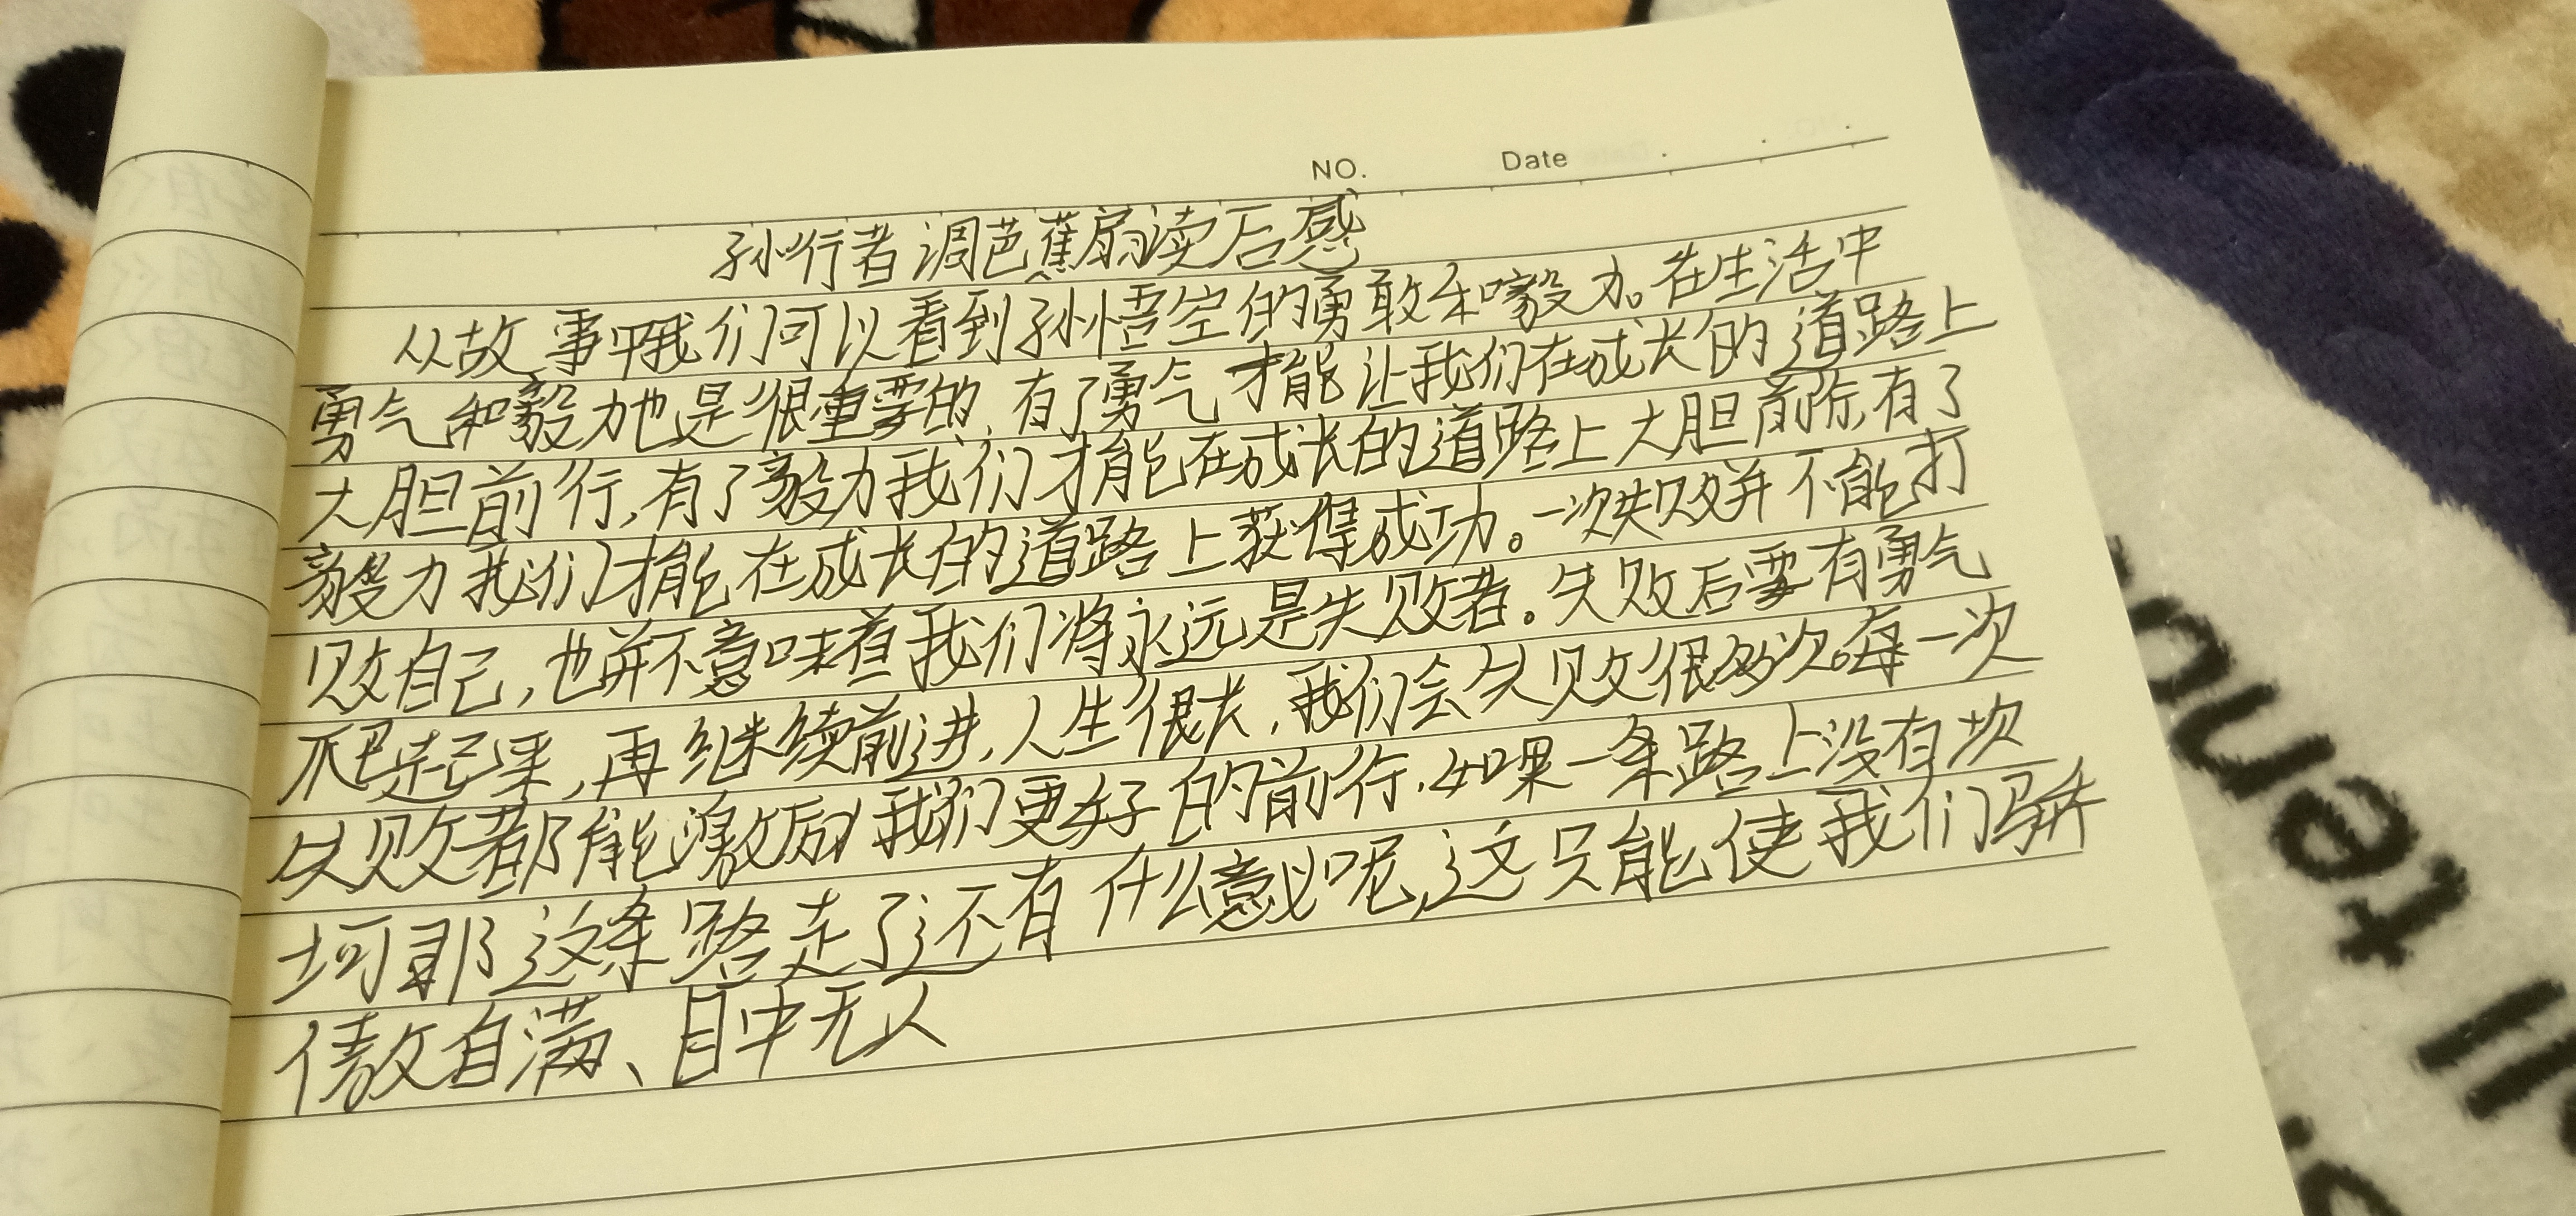 NO. Date
孙行者调芭蕉扇读后感
从故事中我们可以看到孙悟空的勇敢和毅力。在生活中
勇气和毅力也是很重要的,有了勇气才能让我们在成长的道路上
大胆前行,有了毅力我们才能在成长的道路上大胆前行,有了
毅力我们才能在成长的道路上获得成功。一次失败并不能打
败自己,也并不意味着我们将永远是失败者。失败后要有勇气
爬起来,再继续前进,人生很长,我们会失败很多次。每一次
失败都能激励我们更好的前行.如果一条路上没有坎
坷那这条路走了还有什么意义呢,这只能使我们骄
傲自满、目中无人